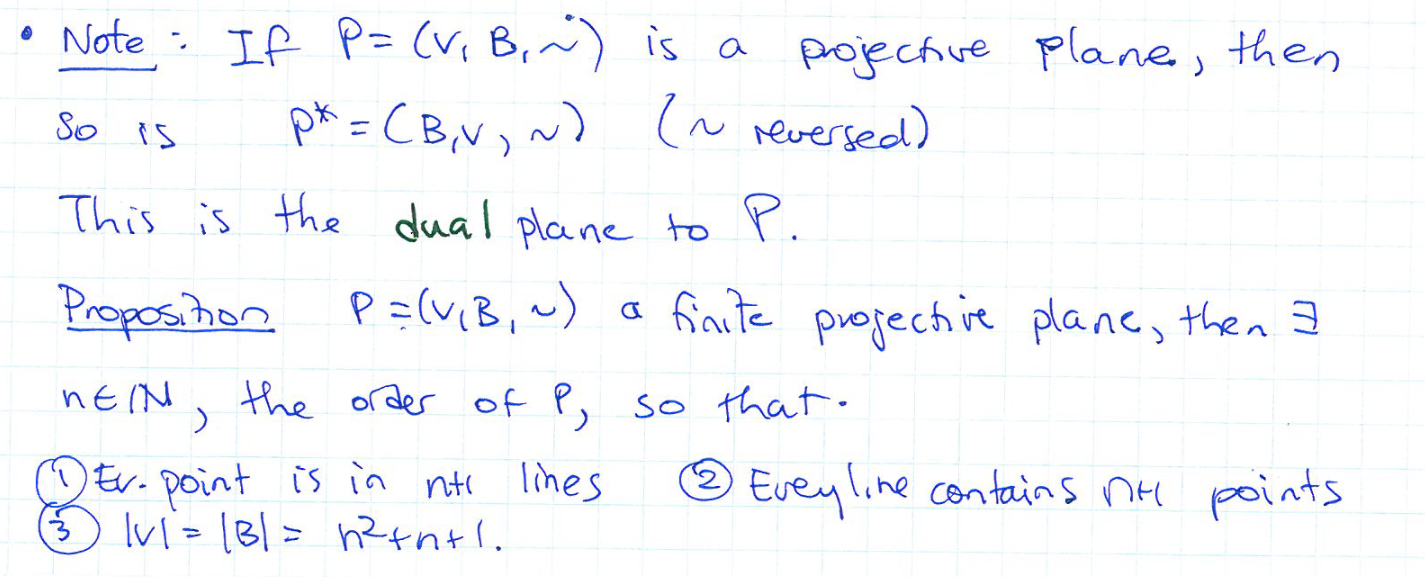 • Note: If P=(V, B, ~) is a projective plane, then
so is P* = (B, V, ~) (~ reversed)
This is the dual plane to P.
Proposition P=(V, B, ~) a finite projective plane, then ∃
n∈ℕ, the order of P, so that.
① Ev. point is in n+1 lines ② Every line contains n+1 points
③ |V| = |B| = n²+n+1.